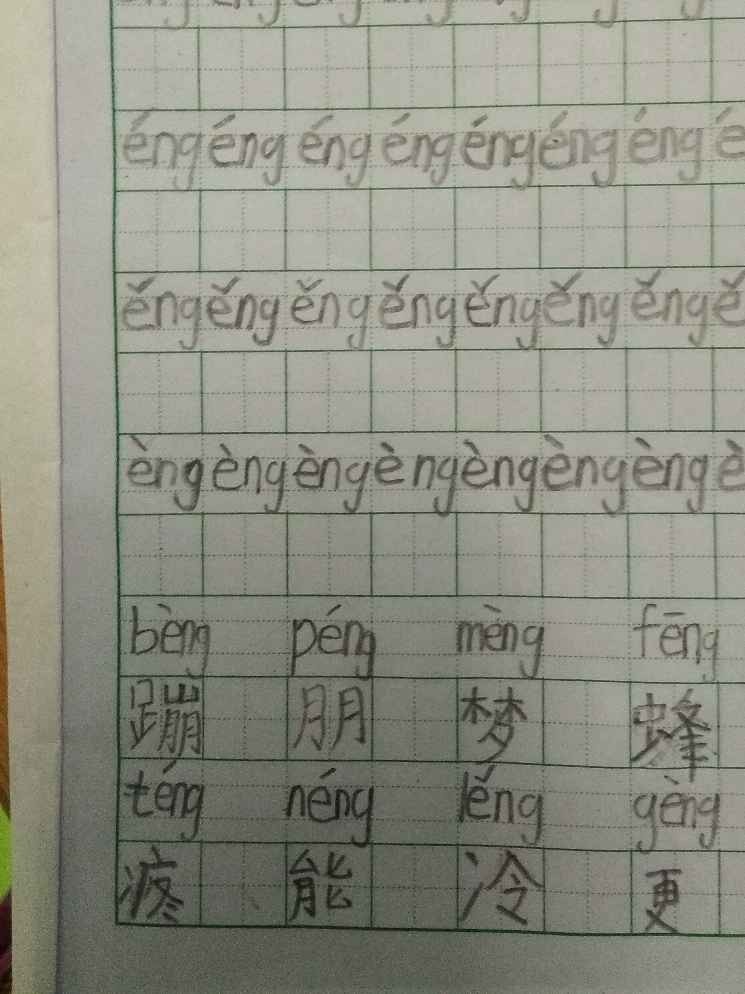 éng éng éng éng éng éng éng é
ěng ěng ěng ěng ěng ěng ěng ě
èng èng èng èng èng èng èng è
bèng péng mèng fēng
蹦 朋 梦 蜂
téng néng lěng gèng
疼 能 冷 更